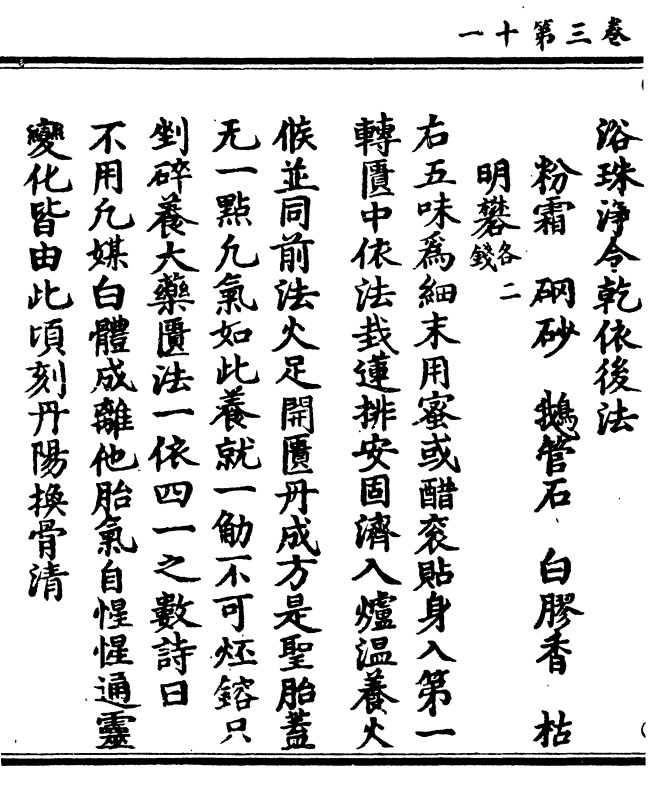 卷三第十一
浴珠淨令乾依後法
粉霜　硇砂　鵝管石　白膠香　枯
明礬各二錢
右五味爲細末用蜜或醋衮貼身入第一
轉匱中依法栽蓮排安固濟入爐温養火
候並同前法火足開匱丹成方是聖胎蓋
无一點允氣如此養就一觔不可烴鎔只
剉碎養大藥匱法一依四一之數詩曰
不用允媒白體成離他胎氣自惺惺通靈
變化皆由此頃刻丹陽換骨清